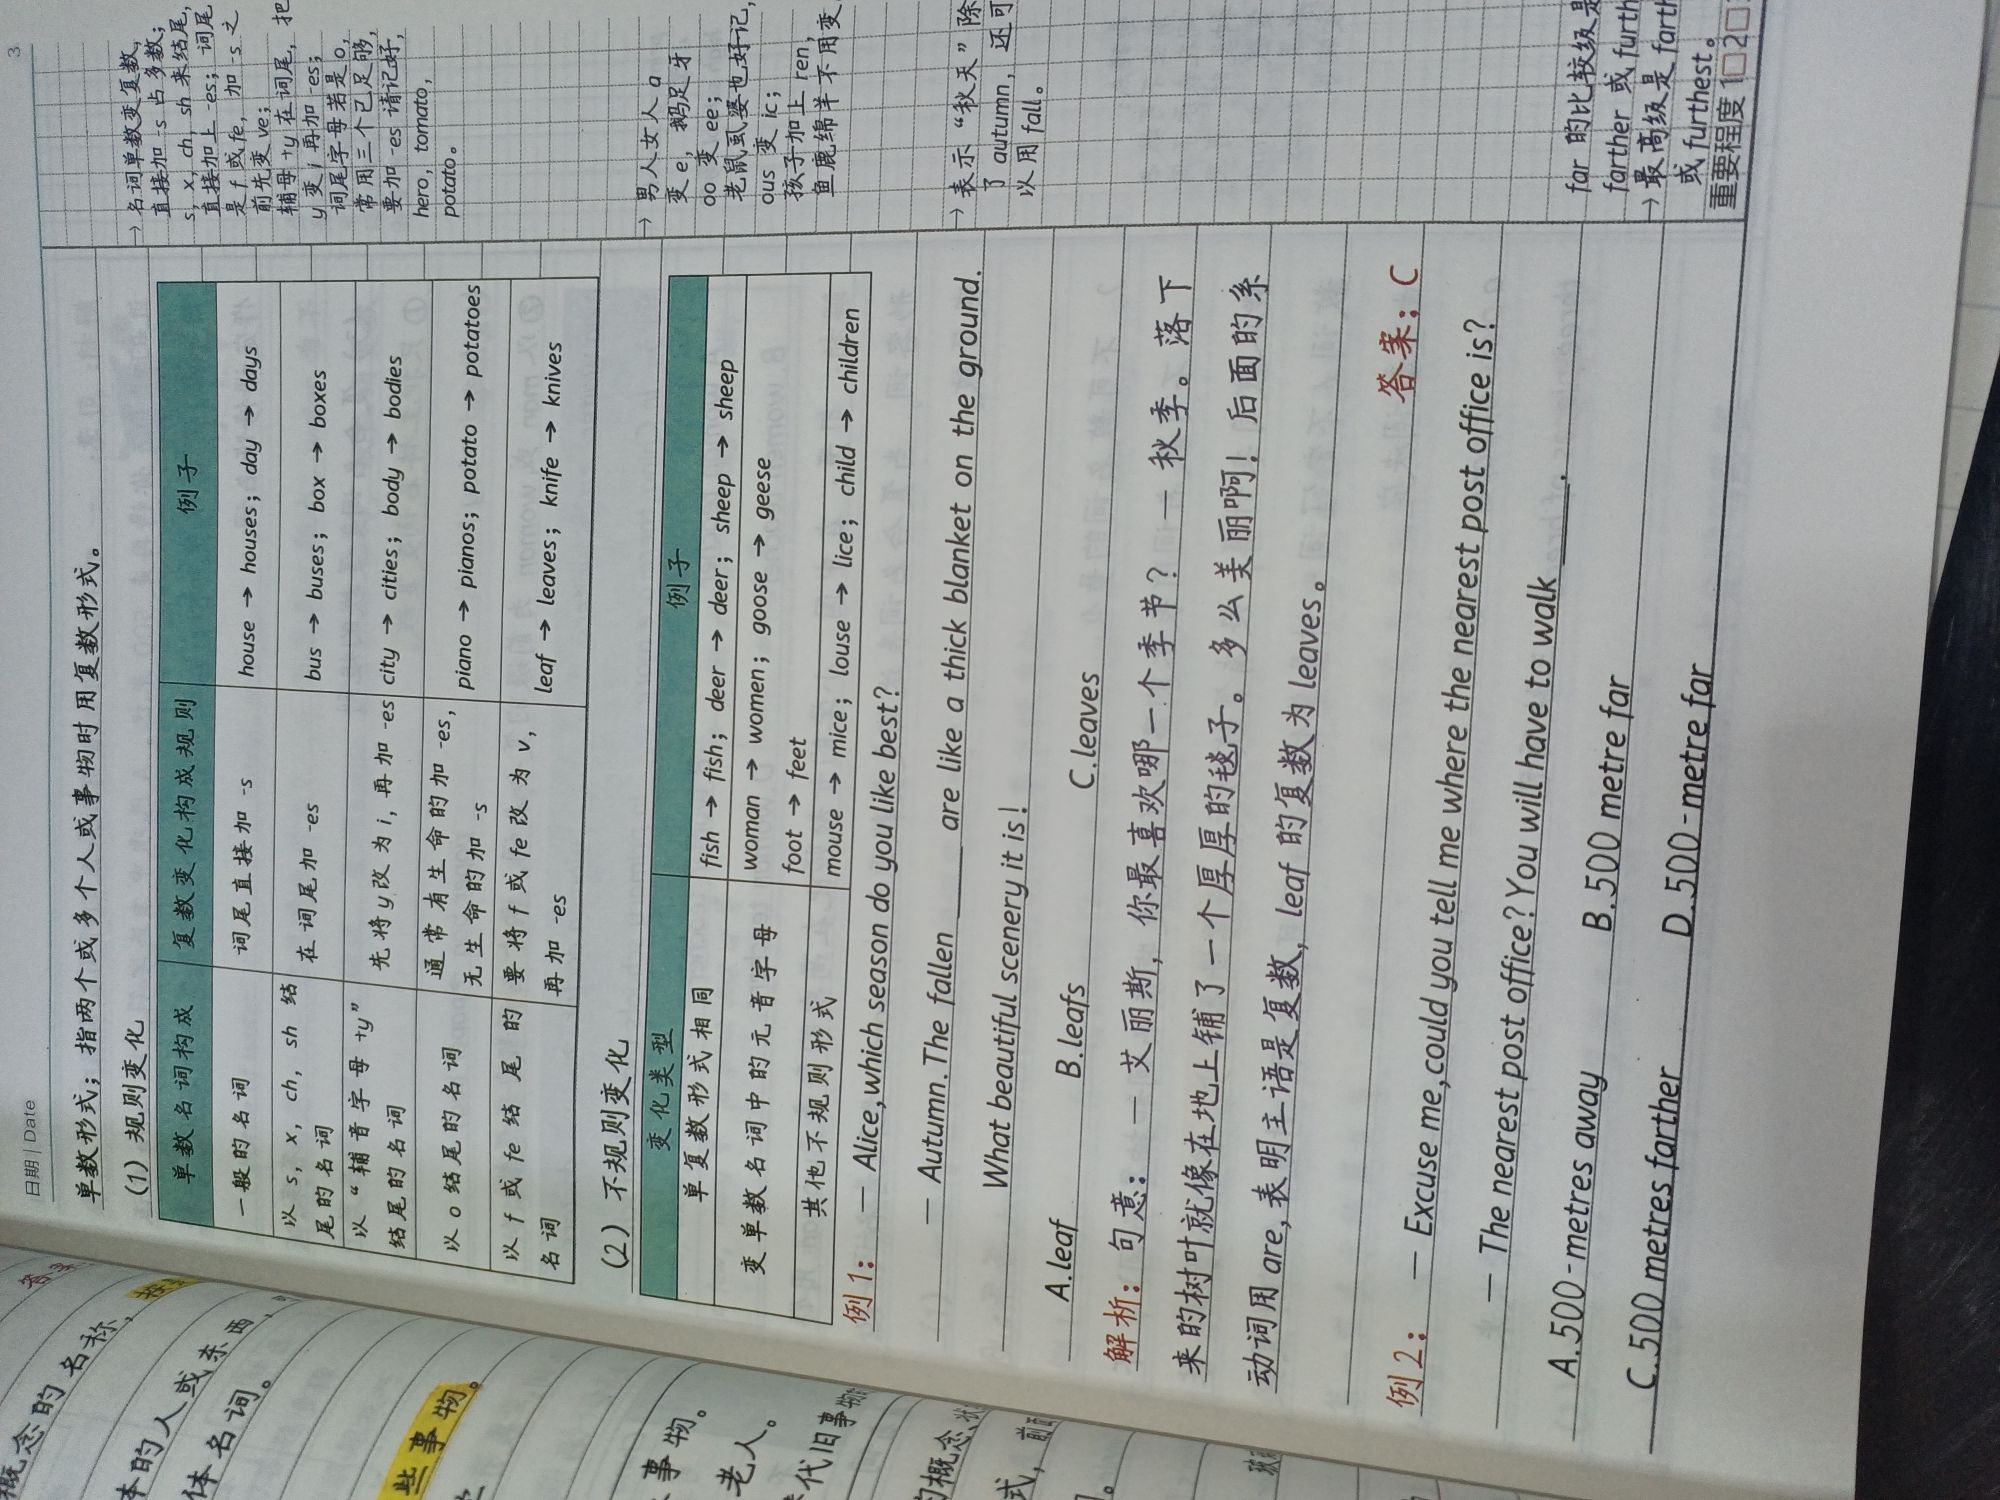 日期 | Date
3
单数形式；指两个或多个人或事物时用复数形式。
(1) 规则变化
单数名词构成 复数变化构成规则 例子
一般的名词 词尾直接加 -s house → houses; day → days
以 s, x, ch, sh 结
尾的名词 在词尾加 -es bus → buses; box → boxes
以“辅音字母 +y”
结尾的名词 先将 y 改为 i, 再加 -es city → cities; body → bodies
以 o 结尾的名词 通常有生命的加 -es,
无生命的加 -s piano → pianos; potato → potatoes
以 f 或 fe 结尾的
名词 要将 f 或 fe 改为 v,
再加 -es leaf → leaves; knife → knives
(2) 不规则变化
变化类型 例子
单复数形式相同 fish → fish; deer → deer; sheep → sheep
变单数名词中的元音字母 woman → women; goose → geese
foot → feet
其他不规则形式 mouse → mice; louse → lice; child → children
例 1: — Alice, which season do you like best?
— Autumn. The fallen ____ are like a thick blanket on the ground.
What beautiful scenery it is!
A.leaf B.leafs C.leaves
解析: 句意: — 艾丽斯, 你最喜欢哪一个季节? — 秋季。落下
来的树叶就像在地上铺了一个厚厚的毯子。多么美丽啊! 后面的系
动词用 are, 表明主语是复数, leaf 的复数为 leaves。
答案: C
例 2: — Excuse me, could you tell me where the nearest post office is?
— The nearest post office? You will have to walk ____.
A.500-metres away B.500 metre far
C.500 metres farther D.500-metre far
→ 名词单数变复数,
直接加 -s 占多数;
s, x, ch, sh 来结尾,
直接加上 -es; 词尾
是 f 或 fe, 加 -s 之
前先变 ve;
辅母 +y 在词尾, 把
y 变 i 再加 -es;
词尾字母若是 o,
常用三个已足够,
要加 -es 请记好,
hero, tomato,
potato。
→ 男人女人 a
变 e, 鹅足牙
oo 变 ee;
老鼠虱婆也好记,
ous 变 ic;
孩子加上 ren,
鱼鹿绵羊不用变
→ 表示“秋天”除
了 autumn, 还可
以用 fall。
far 的比较级是
farther 或 furth
→ 最高级是 farth
或 furthest。
重要程度 1□2□
概念的名称,
本的人或东西,
体名词。
些事物。
事物。
老人。
代旧事物
的概念、状
式, 前面